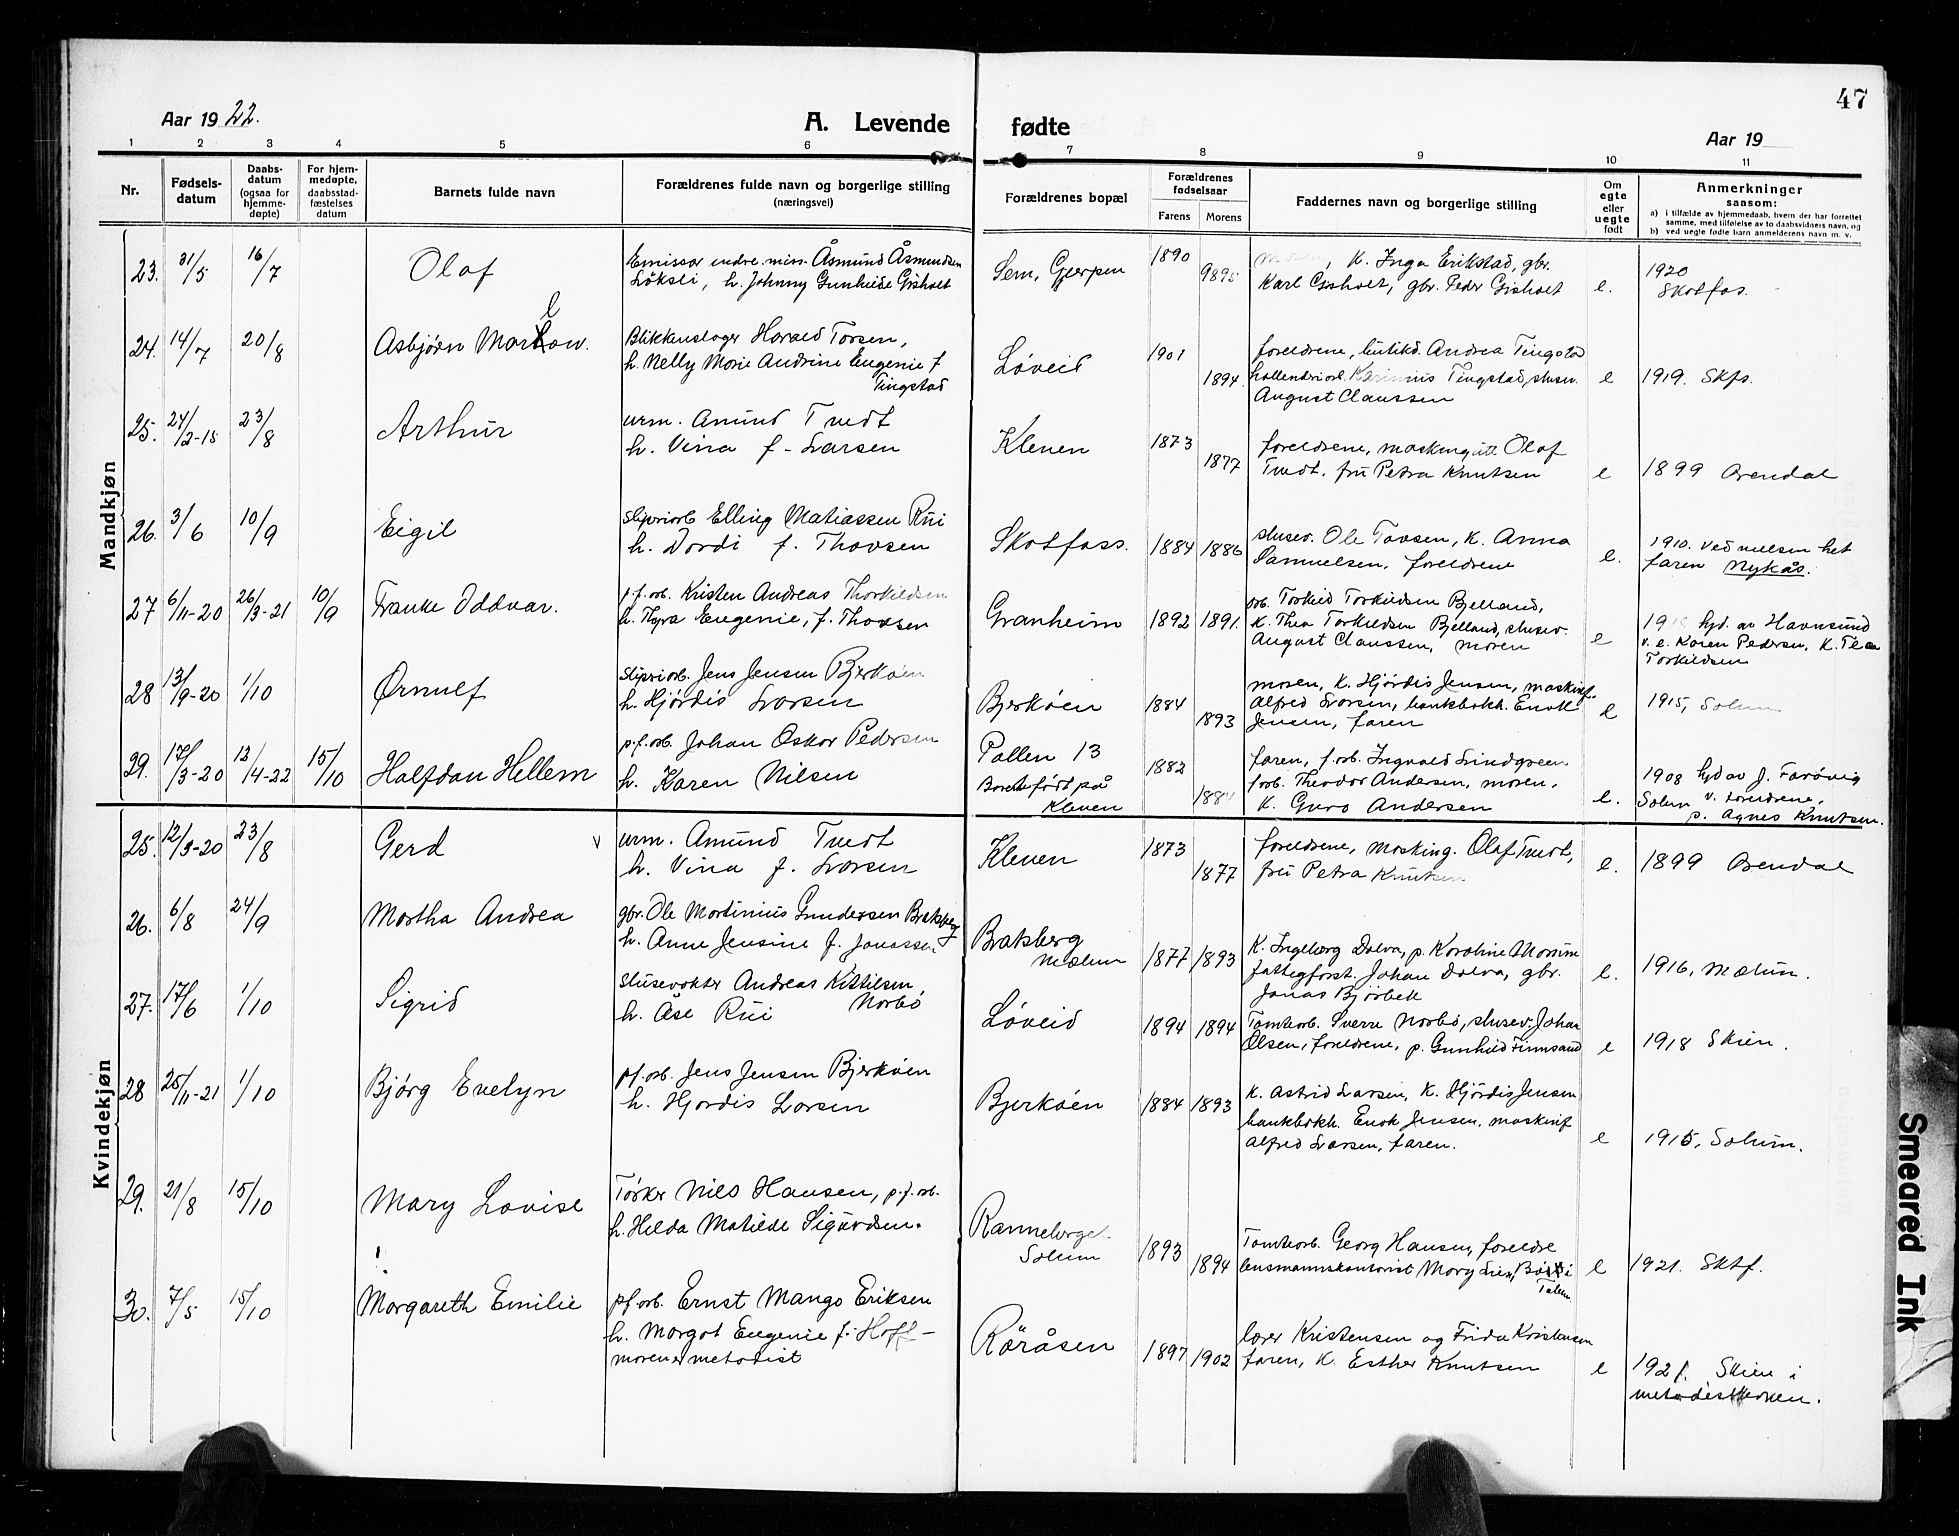 47
Aar 19 22.
A. Levende fødte
Aar 19
1 2 3 4 5 6 7 8 9 10 11
Nr.
Fødsels-
datum
Daabs-
datum
(ogsaa for
hjemme-
døpte)
For hjem-
medøpte,
daabsstad-
fæstelses
datum
Barnets fulde navn
Forældrenes fulde navn og borgerlige stilling
(næringsvei)
Forældrenes bopæl
Forældrenes
fødselsaar
Farens Morens
Faddernes navn og borgerlige stilling
Om
egte
eller
uegte
født
Anmerkninger
saasom:
a) i tilfælde av hjemmedaab, hvem der har forrettet
samme, med tilføielse av to daabsvidners navn, og
b) ved uegte fødte barn anmelderens navn m. v.
Mandkjøn
23. 31/5 16/7 Olaf
Emissær indre miss. Åsmund Åsmundsen
Løksli, h. Johnny Gunhilde Gisholt
Sem, Gjerpen 1890 9895
K. Inga Erikstad, gbr.
Karl Gisholt, gbr. Peder Gisholt e.
1920
Skotfos.
24. 14/7 20/8 Asbjørn
Blikkenslager Harald Torsen,
h. Nelly Marie Andrine Eugenie f
Tingstad
Løveid 1901 1894
foreldrene, butikd. Andrea Tingstad
Tingstad, slusev.
August Claussen e 1919. Skfs.
25. 24/2-15 23/8 Arthur
urm. Amund Tvedt
h. Vina f. Larsen
Kleven 1873 1877
foreldrene, masking. Olaf
Tvedt. fru Petra Knutsen e 1899 Arendal
26. 3/6 10/9 Eigil
sliperiarb. Elling Matiassen Rui
h. Dordi f. Thovsen
Skotfoss. 1884 1886
slusev. Ole Tovsen, K. Anna
Samuelsen, foreldrene e.
1910. Ved vielsen het
faren Nykås.
27 6/11-20 26/3-21 10/9 Franke Oddvar.
p.f. arb. Kristen Andreas Thorkildsen
h. Thyra Eugenie, f. Thovsen
Granheim 1892 1891.
arb. Torkild Torkildsen Bjelland,
K. Thea Torkildsen Bjelland, slusev.
August Claussen, moren e
hjd. av Havnsund
v. e. Karen Pedersen, K. Tea
Torkildsen
28 13/9-20 1/10 Ørnulf
sliperiarb. Jens Jensen Bjerkøen
h. Hjørdis Larsen
Bjerkøen 1884 1893
moren, K. Hjørdis Jensen, maskinf.
Alfred Larsen, bankbokh. Enok
Jensen, faren e 1915, Solum
29. 17/3-20 12/14-22 15/10 Halfdan Hellem
p.f. arb. Johan Oskar Pedersen
h. Karen Nilsen
Pollen 13
Barnet født på
Kleven
1882 1884
faren, f. arb. Ingvald Lindgren.
farb. Theodor Andersen, moren,
K. Guro Andersen e.
1908 hjd av J. Farøvig
Solum v. foreldrene,
p. Agnes Knutsen.
Kvindekjøn
25. 12/3-20 23/8 Gerd
urm. Amund Tvedt
h. Vina f. Larsen
Kleven 1873 1877
foreldrene, masking. Olaf Tvedt,
fru Petra Knutsen e. 1899 Arendal
26. 6/8 24/9 Martha Andrea
gbr. Ole Martinius Gundersen Bratsberg
h. Anne Jensine f. Jonassen
Bratsberg
Mælum
1877 1893
K. Ingeborg Dalva, p. Karoline
fattigforst. Johan Dalva, gbr.
Jonas Bjørbek e. 1916, Mælum.
27. 17/6 1/10 Sigrid
slusevokter Andreas Kittilsen
Norbø
h. Åse Rui
Løveid 1894 1894
Tomtearb. Sverre Norbø, slusev. Johan
Olsen, foreldrene, p. Gunhild Finnsand e 1918 Skien.
28 25/11-21 1/10 Bjørg Evelyn
pf. arb. Jens Jensen Bjerkøen
h. Hjordis Larsen
Bjerkøen 1884 1893
K. Astrid Larsen, K. Hjördis Jensen
bankbokh. Enok Jensen, maskinf
Alfred Larsen, faren. e 1915, Solum.
29. 21/8 15/10 Mary Lovise
Tørker Nils Hansen, p.f. arb.
h. Helda Matilde Sigurdsen.
Solum 1893 1894
Tomtearb. Georg Hansen, foreldre
lensmannskontorist Mary e 1921. Sktf.
30. 7/5 15/10 Margareth Emilie
pf. arb. Ernst Mango Eriksen
h. Margot Eugenie f. Hoff—
moren er metodist
Røråsen 1897 1902
lærer Kristensen og Frida Kristensen
faren, K. Esther Knutsen e
1921. Skien i
metodistkirken.
Smeared Ink